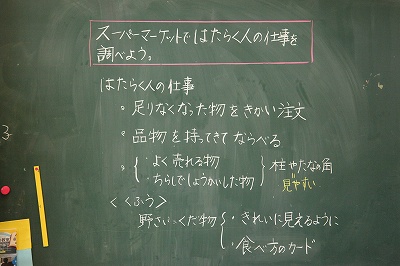 スーパーマーケットではたらく人の仕事を
調べよう。
はたらく人の仕事
。足りなくなった物をきかい注文
。品物を持ってきてならべる
。{・よく売れる物
・ちらしでしょうかいした物} 柱やたなの角
見やすい
＜くふう＞
野さい・くだ物{・きれいに見えるように
・食べ方のカード